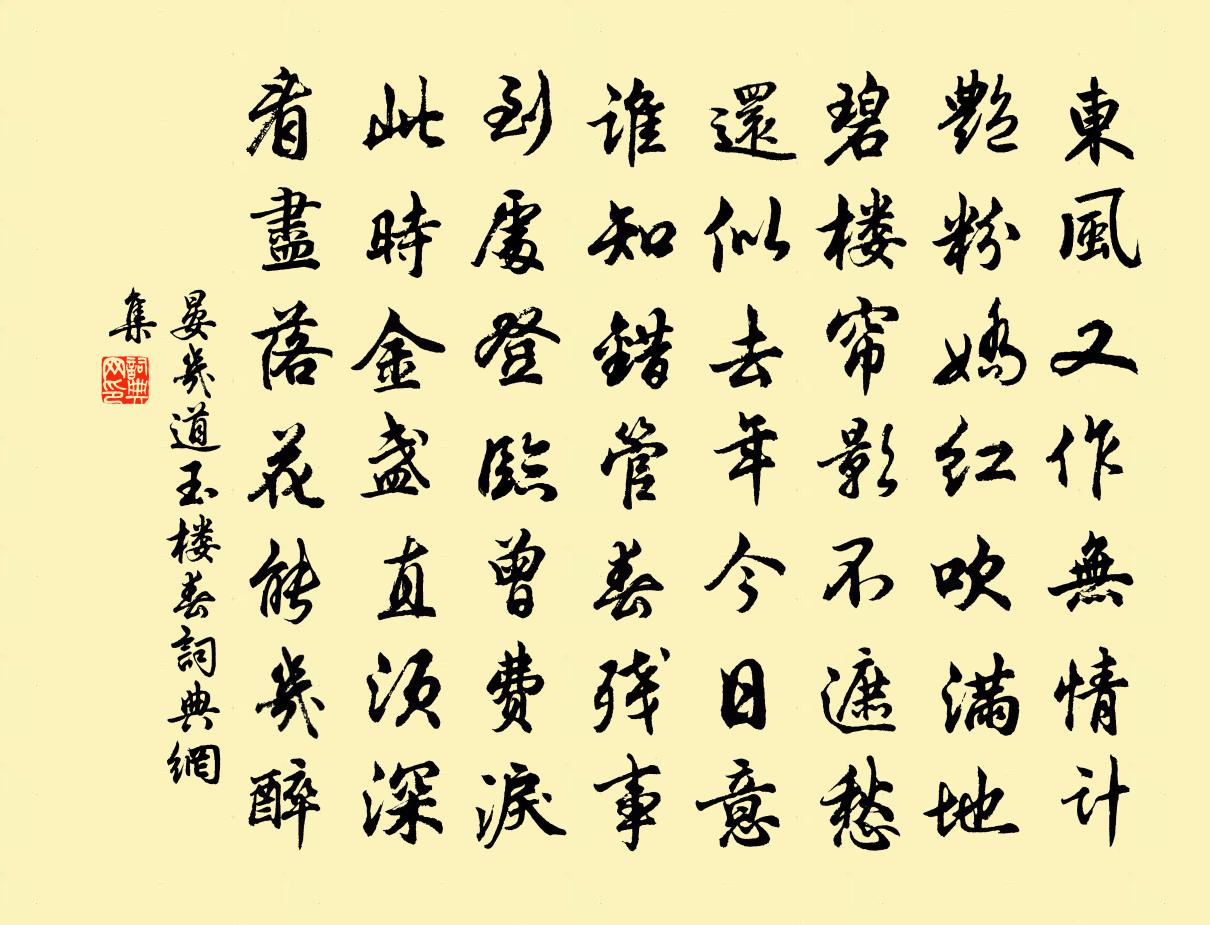 東風又作無情計
艷粉嬌紅吹滿地
碧楼帘影不遮愁
還似去年今日意
誰知錯管春残事
到處登臨曾費淚
此時金盏直須深
看盡落花能幾醉
晏幾道玉楼春詞典網
集
詞典
网印